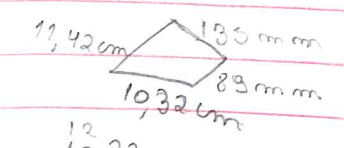 11,42cm
135 mm
89 mm
10,32cm
12